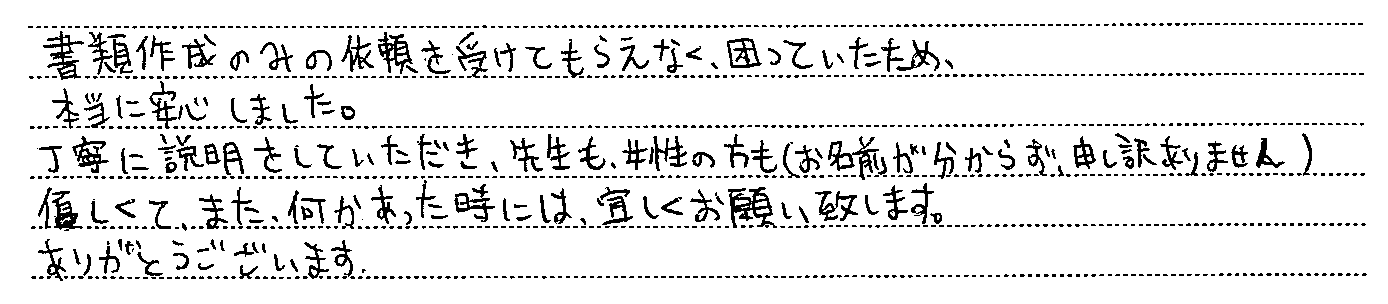 書類作成のみの依頼を受けてもらえなく、困っていたため、
本当に安心しました。
丁寧に説明をしていただき、先生も、女性の方も(お名前が分からず、申し訳ありません)
優しくて、また、何かあった時には、宜しくお願い致します。
ありがとうございます.